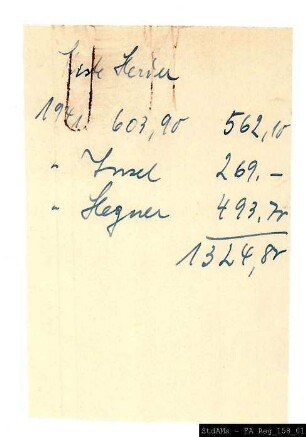 Liste Herder
1941. 603,90 562,10
" Insel 269.-
" Hegner 493,70
1324,80
StdAMs - FA Reg 158_61